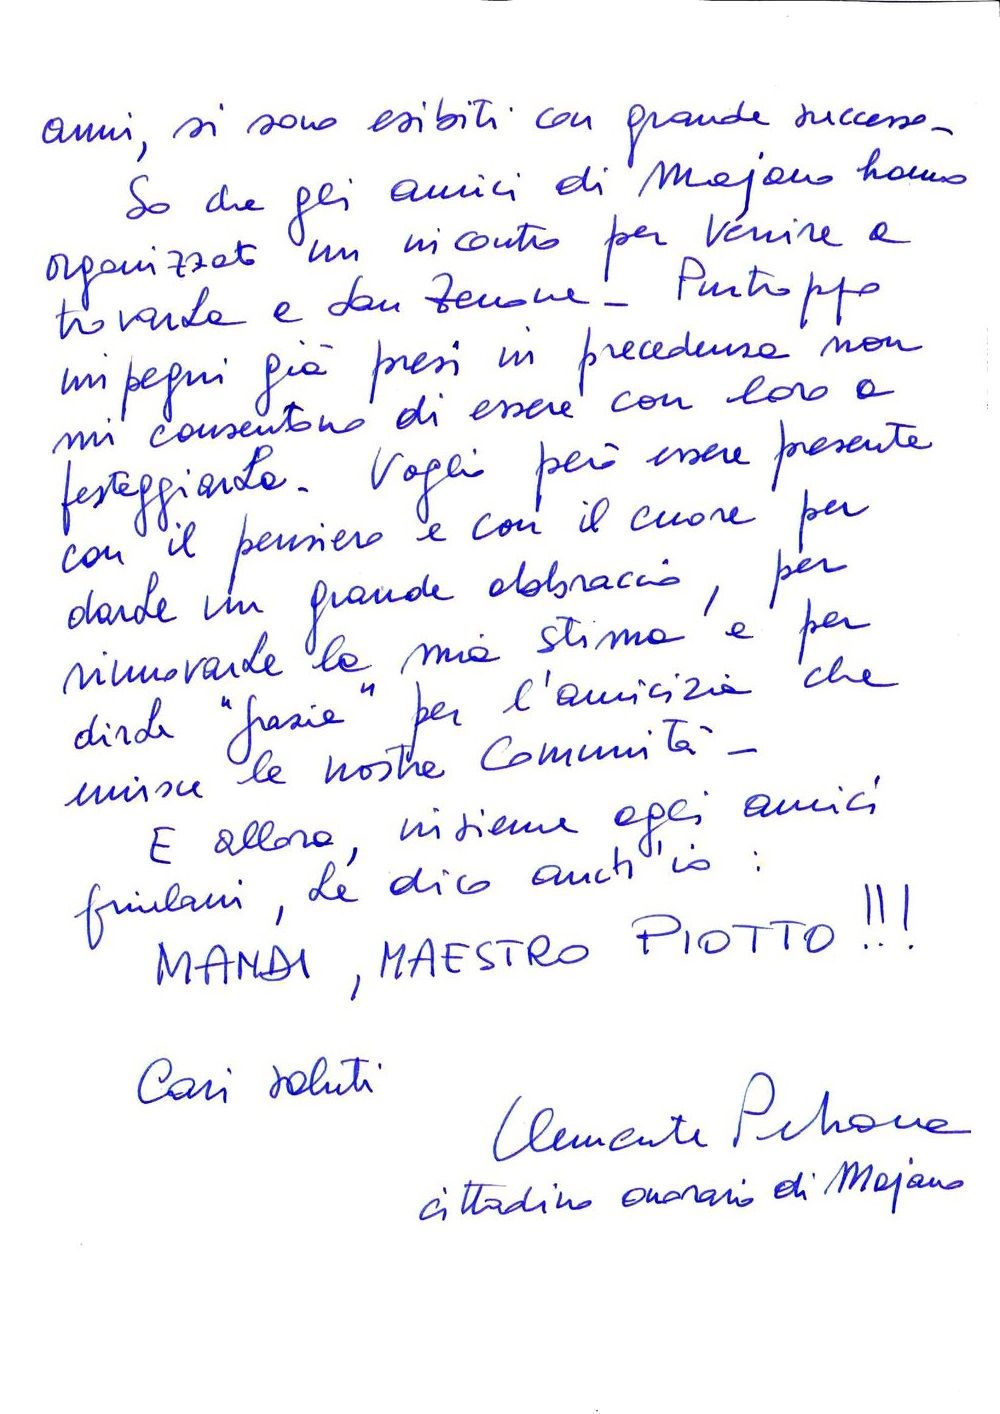 anni, si sono esibiti con grande successo -
So che gli amici di Majano hanno
organizzato un incontro per venire a
trovarLa a San Zenone - Purtroppo
impegni già presi in precedenza non
mi consentono di essere con loro a
festeggiarLa. Voglio però essere presente
con il pensiero e con il cuore per
darLe un grande abbraccio, per
rinnovarLe la mia stima e per
dirLe "grazie" per l'amicizia che
unisce le nostre Comunità -
E allora, insieme agli amici
friulani, Le dico anch'io :
MANDI, MAESTRO PIOTTO !!!
Cari saluti
Clemente
cittadino onorario di Majano